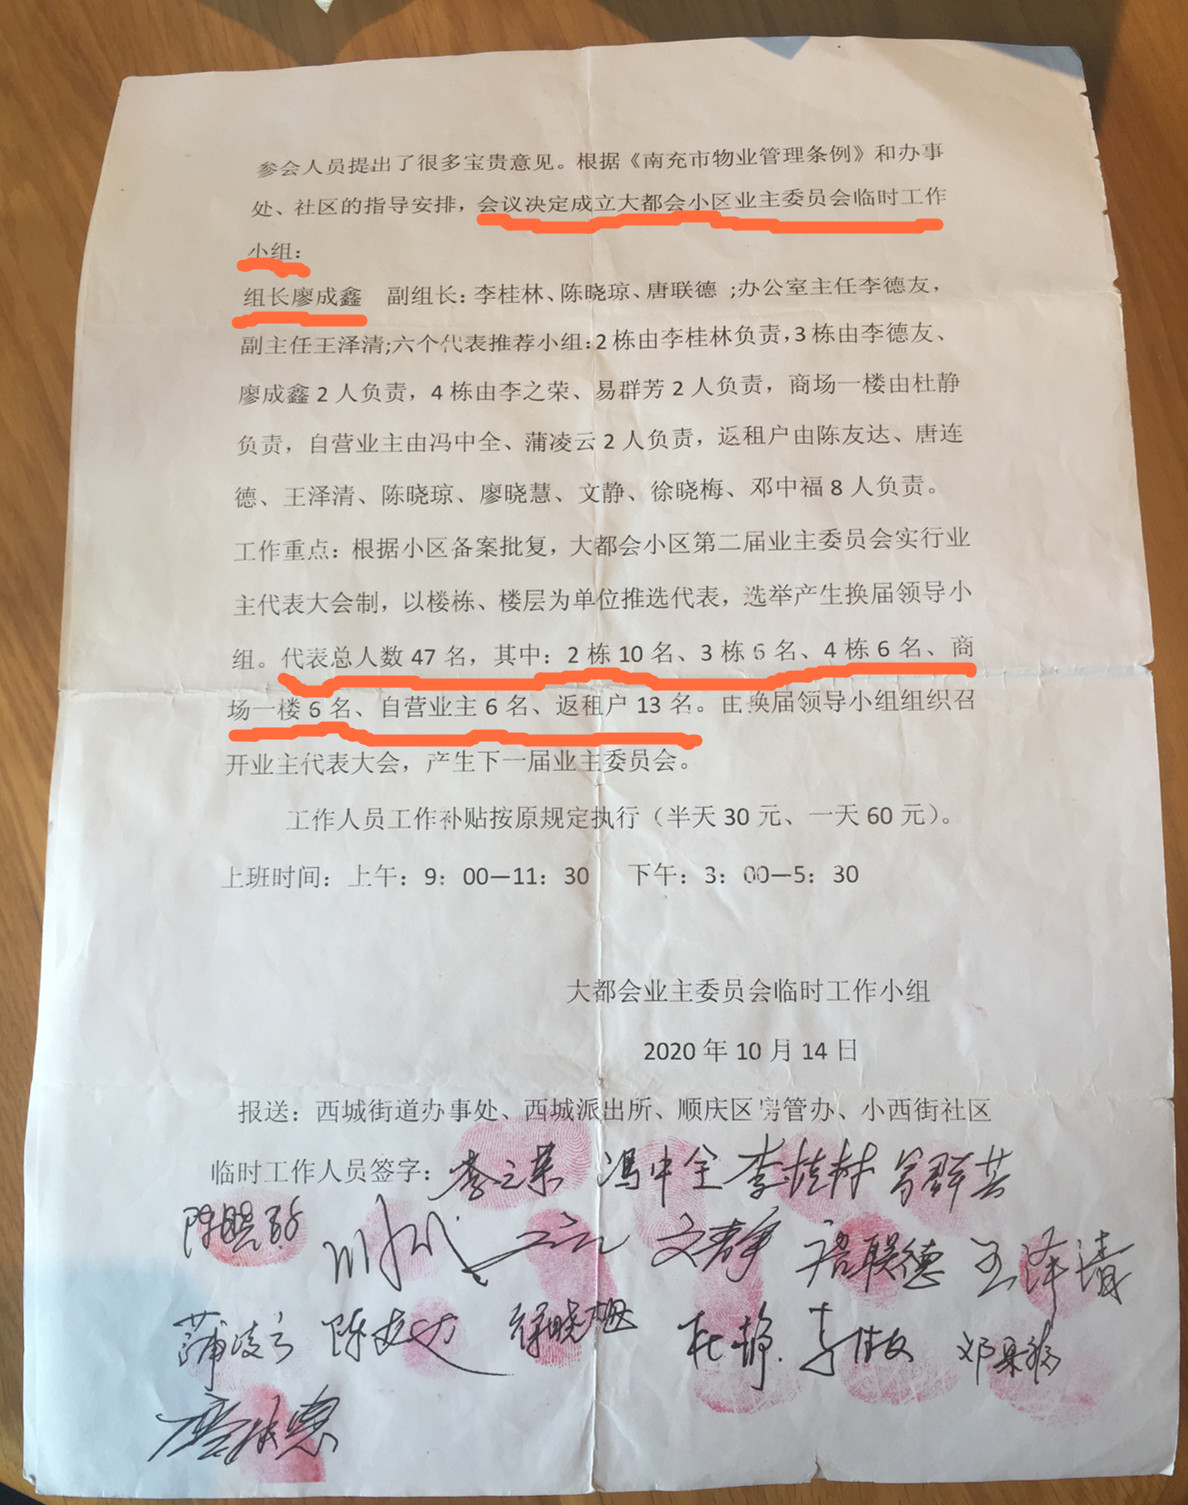 参会人员提出了很多宝贵意见。根据《南充市物业管理条例》和办事
处、社区的指导安排，会议决定成立大都会小区业主委员会临时工作
小组：
组长廖成鑫　副组长：李桂林、陈晓琼、唐联德 ;办公室主任李德友，
副主任王泽清;六个代表推荐小组：2栋由李桂林负责，3栋由李德友、
廖成鑫2人负责，4栋由李之荣、易群芳2人负责，商场一楼由杜静
负责，自营业主由冯中全、蒲凌云2人负责，返租户由陈友达、唐连
德、王泽清、陈晓琼、廖晓慧、文静、徐晓梅、邓中福8人负责。
工作重点：根据小区备案批复，大都会小区第二届业主委员会实行业
主代表大会制，以楼栋、楼层为单位推选代表，选举产生换届领导小
组。代表总人数47名，其中：2栋10名、3栋6名、4栋6名、商
场一楼6名、自营业主6名、返租户13名。由换届领导小组组织召
开业主代表大会，产生下一届业主委员会。
工作人员工作补贴按原规定执行（半天30元、一天60元）。
上班时间：上午：9：00—11：30　下午：3：00—5：30
大都会业主委员会临时工作小组
2020年10月14日
报送：西城街道办事处、西城派出所、顺庆区房管办、小西街社区
临时工作人员签字：李之荣 冯中全 李桂林
文静 唐联德 王泽清
蒲凌云 陈友达 徐晓梅 杜静